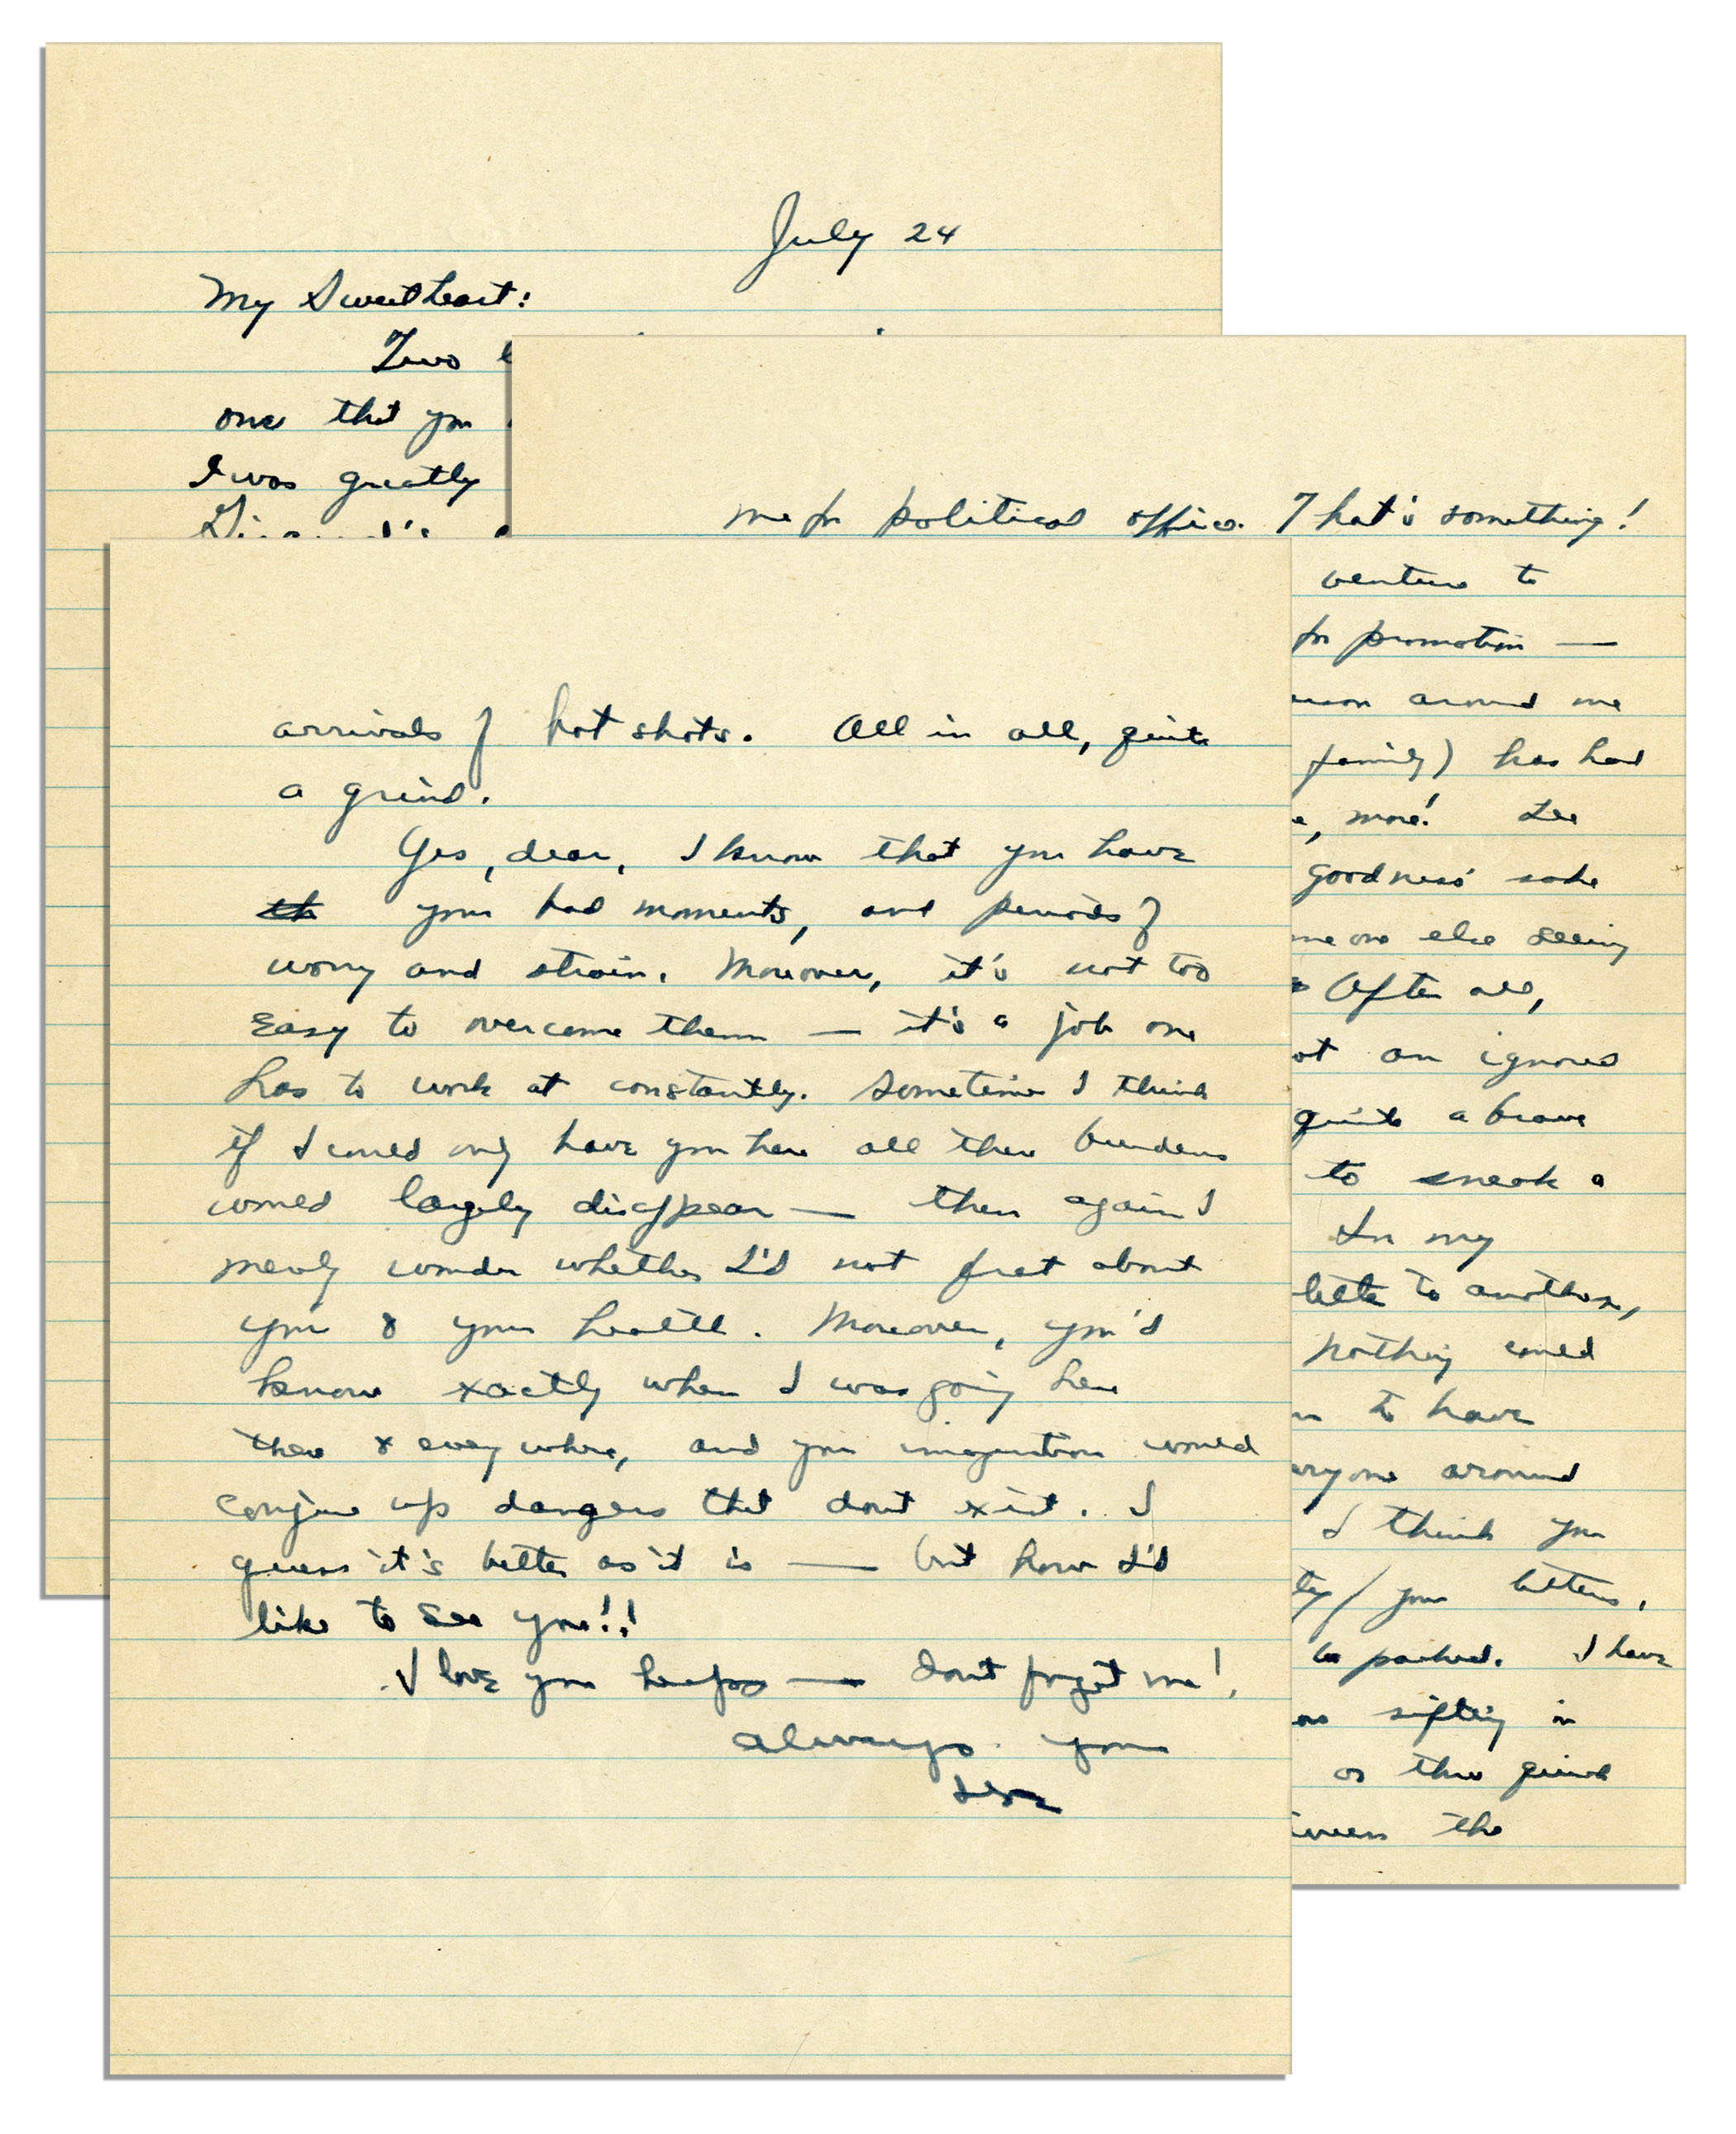 July 24
My Sweetheart:
Two
one that you
I was greatly
me for political office. That's something!
venture to
for promotion —
around me
family) has had
more!
goodness' sake
one else seeing
After all,
an ignored
quite a brave
to sneak a
In my
letter to another,
nothing could
to have
around
I think you
your letters.
be packed. I have
sifting in
or this grind
the
arrivals of hot shots. All in all, quite
a grind.
Yes, dear, I know that you have
th your bad moments, and periods of
worry and strain. Moreover, it's not too
easy to overcome them — it's a job one
has to work at constantly. Sometimes I think
if I could only have you here all these burdens
would largely disappear — then again I
merely wonder whether I'd not fret about
you & your health. Moreover, you'd
know exactly when I was going here
there & everywhere, and your imagination would
conjure up dangers that don't exist. I
guess it's better as it is — but how I'd
like to see you!!
I love you heaps — don't forget me!
Always your